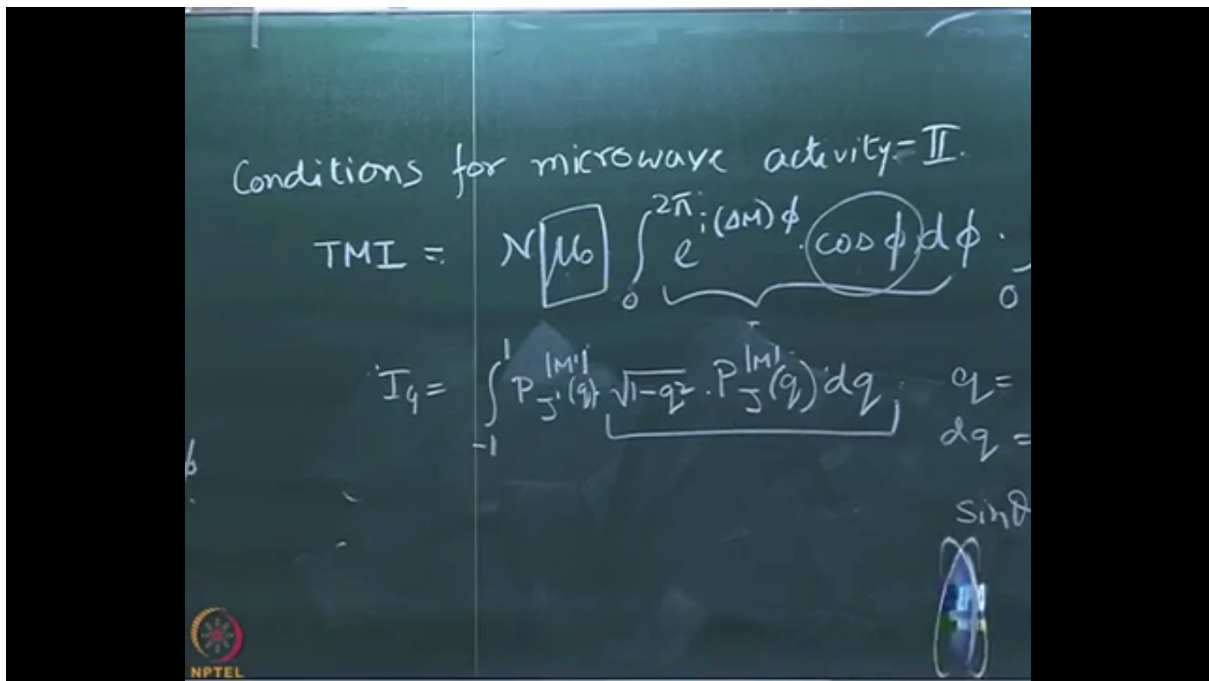 Conditions for microwave activity - II.
TMI = N μ₀ ∫₀^{2π} e^{i(ΔM)φ} . cosφ dφ . 0
I₄ = ∫₋₁^{1} P_{J'}^{|M'|}(q) √(1-q²) . P_J^{|M|}(q) dq , q =
dq =
sinθ
NPTEL